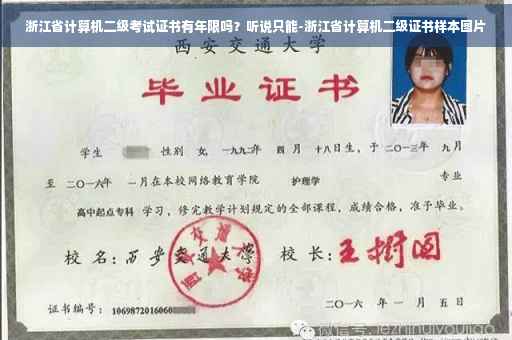 浙江省计算机二级考试证书有年限吗？听说只能-浙江省计算机二级证书样本图片
西安交通大学
毕业证书
学生 性别 女, 一九九二年 四月 十八日生, 于 二〇一三年 九月
至 二〇一六年 一月在本校网络教育学院 护理学 专业
高中起点专科 学习, 修完教学计划规定的全部课程, 成绩合格, 准予毕业。
校名: 西安交通大学 校长: 王树国
西安交通大学
证书编号: 1069872016060 二〇一六年 一月 五日
微信号: jiezhinuiyoujiao